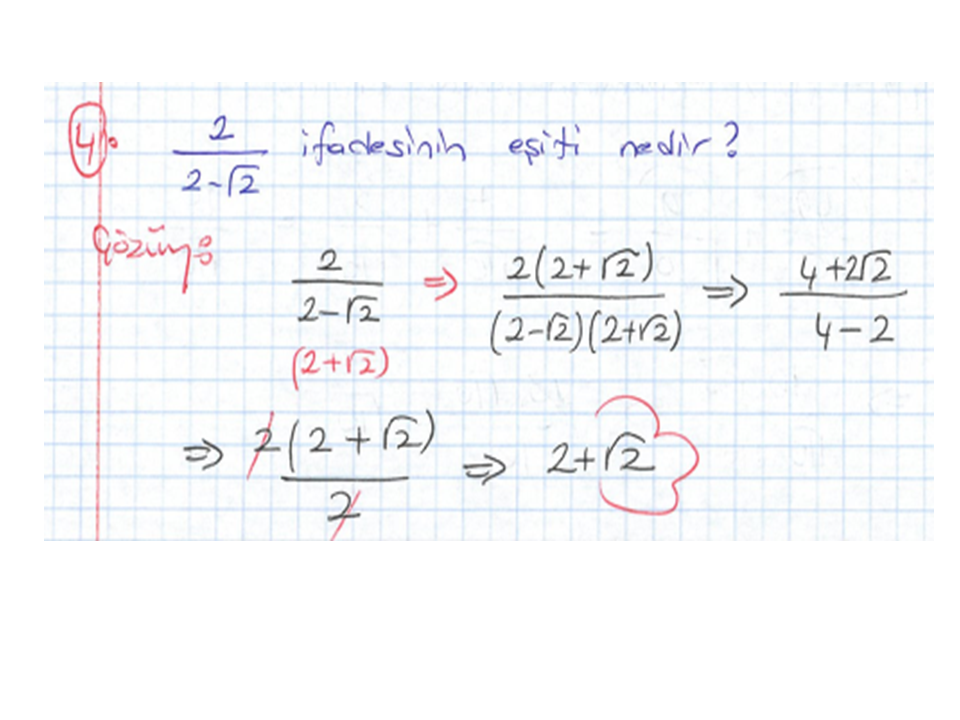 4. 2/(2-√2) ifadesinin eşiti nedir?
Çözüm:
2/(2-√2) (2+√2) ⇒ 2(2+√2)/((2-√2)(2+√2)) ⇒ (4+2√2)/(4-2)
⇒ 2(2+√2)/2 ⇒ 2+√2